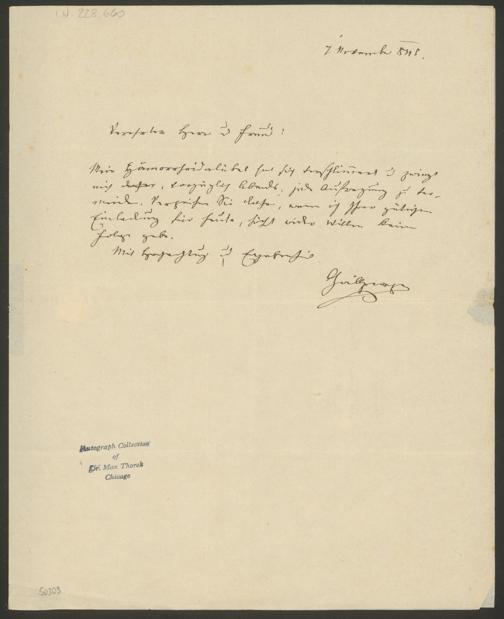 I.N. 228.660
7 November 848.
Verehrter Herr u Freund!
Mein Hämorrhoidalübel hat sich verschlimmert u zwingt
mich daher, vorzüglich Abends, jede Aufregung zu ver-
meiden. Verzeihen Sie daher, wenn ich Ihrer gütigen
Einladung für heute, höchst wider Willen keine
Folge gebe.
Mit Hochachtung u Ergebenheit
Grillparzer
Autograph Collection
of
Dr. Max Thorek
Chicago
50303